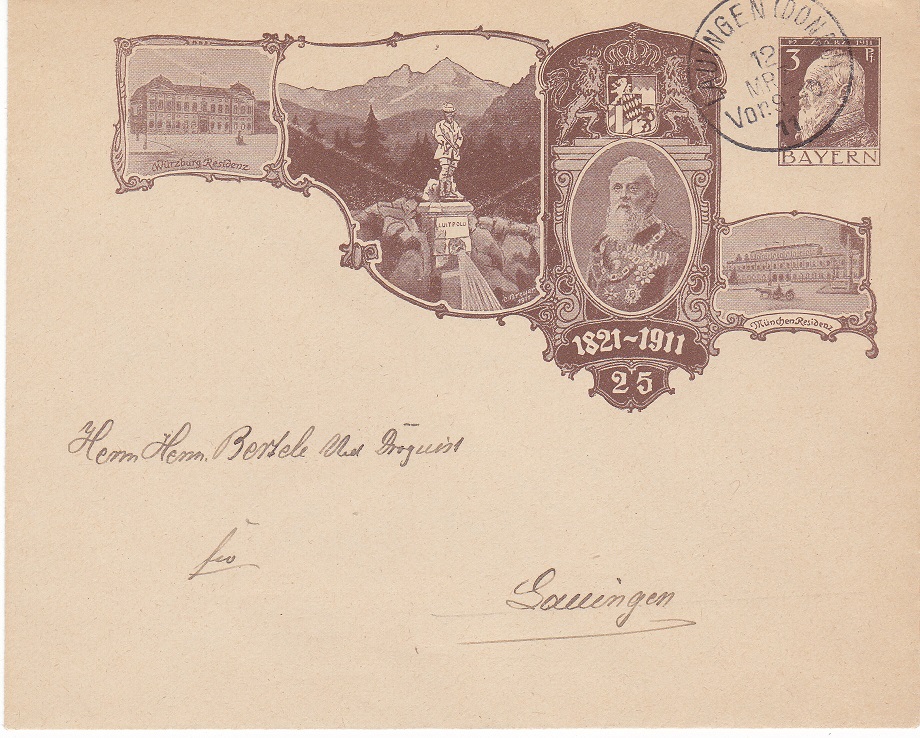 Würzburg Residenz
LUITPOLD
1821~1911
25
LAUINGEN (DONAU)
12
MRZ
Vorm.
11
12 MÄRZ 1911
3 Pf
BAYERN
München Residenz
Herrn Herm. Bertele
Lauingen